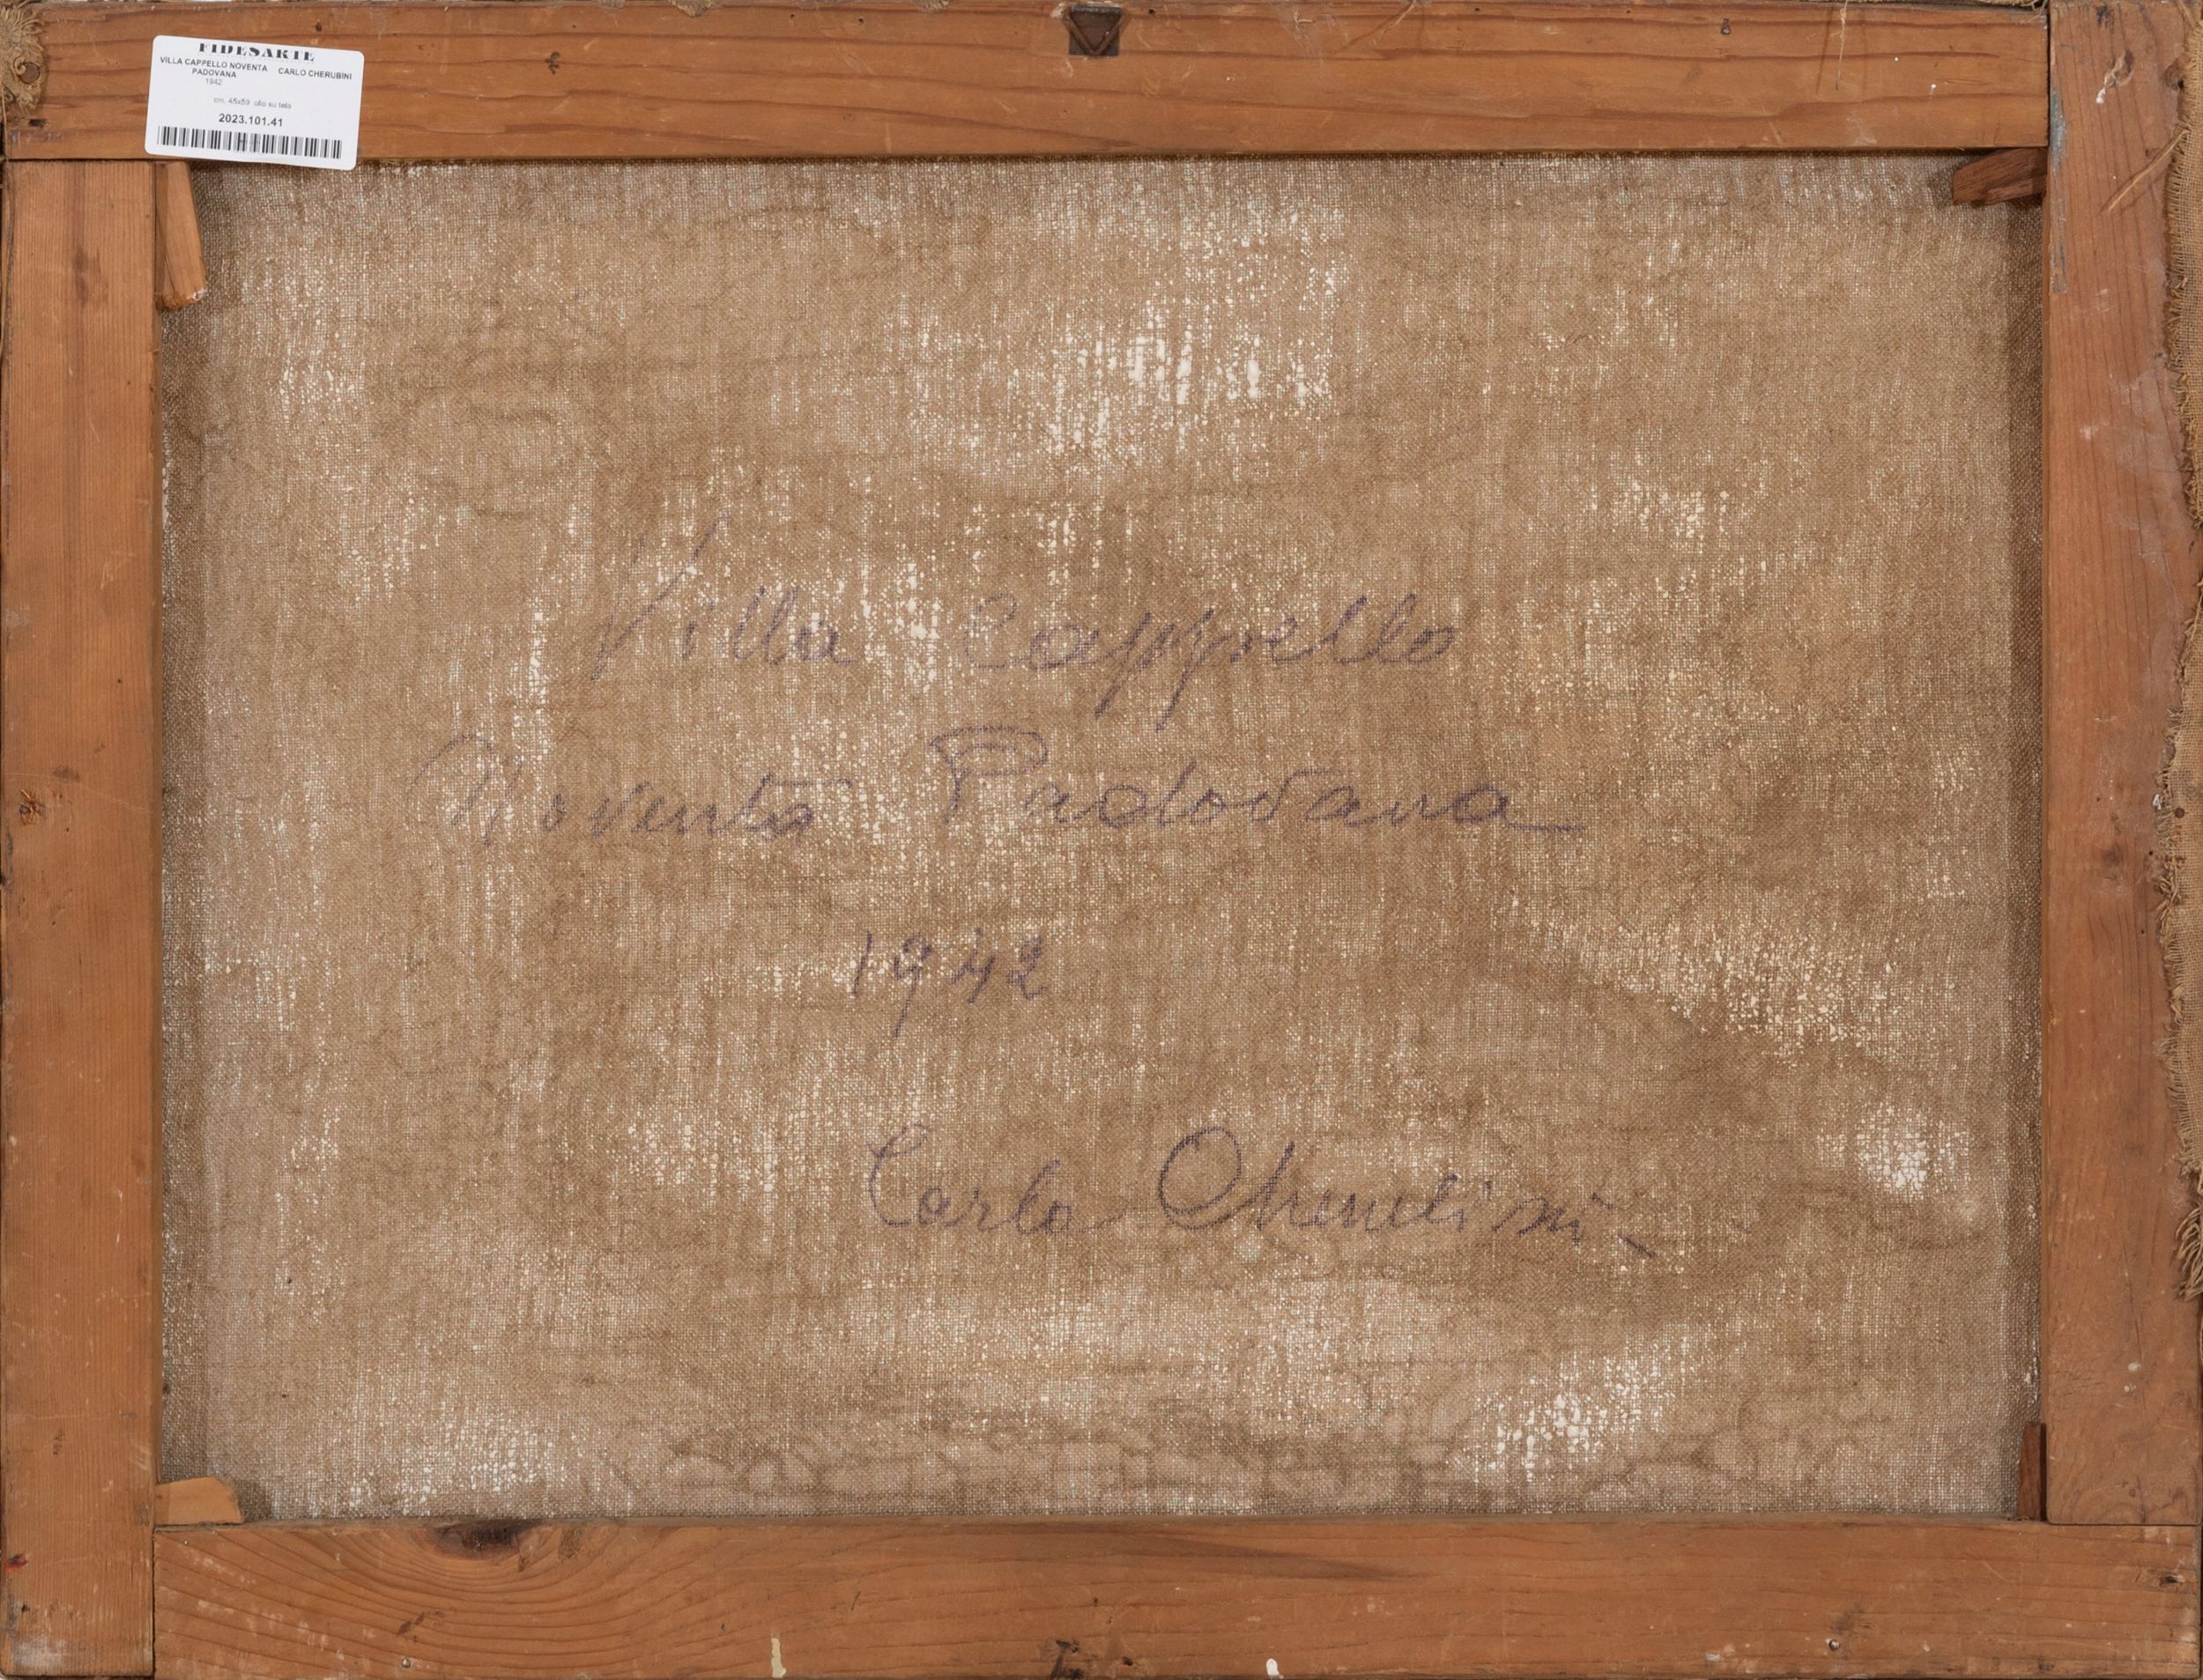 FIDESARTE
VILLA CAPPELLO NOVENTA PADOVANA
CARLO CHERUBINI
1942
cm. 45x59 olio su tela
2023.101.41
Villa Cappello
Noventa Padovana
1942
Carlo Cherubini